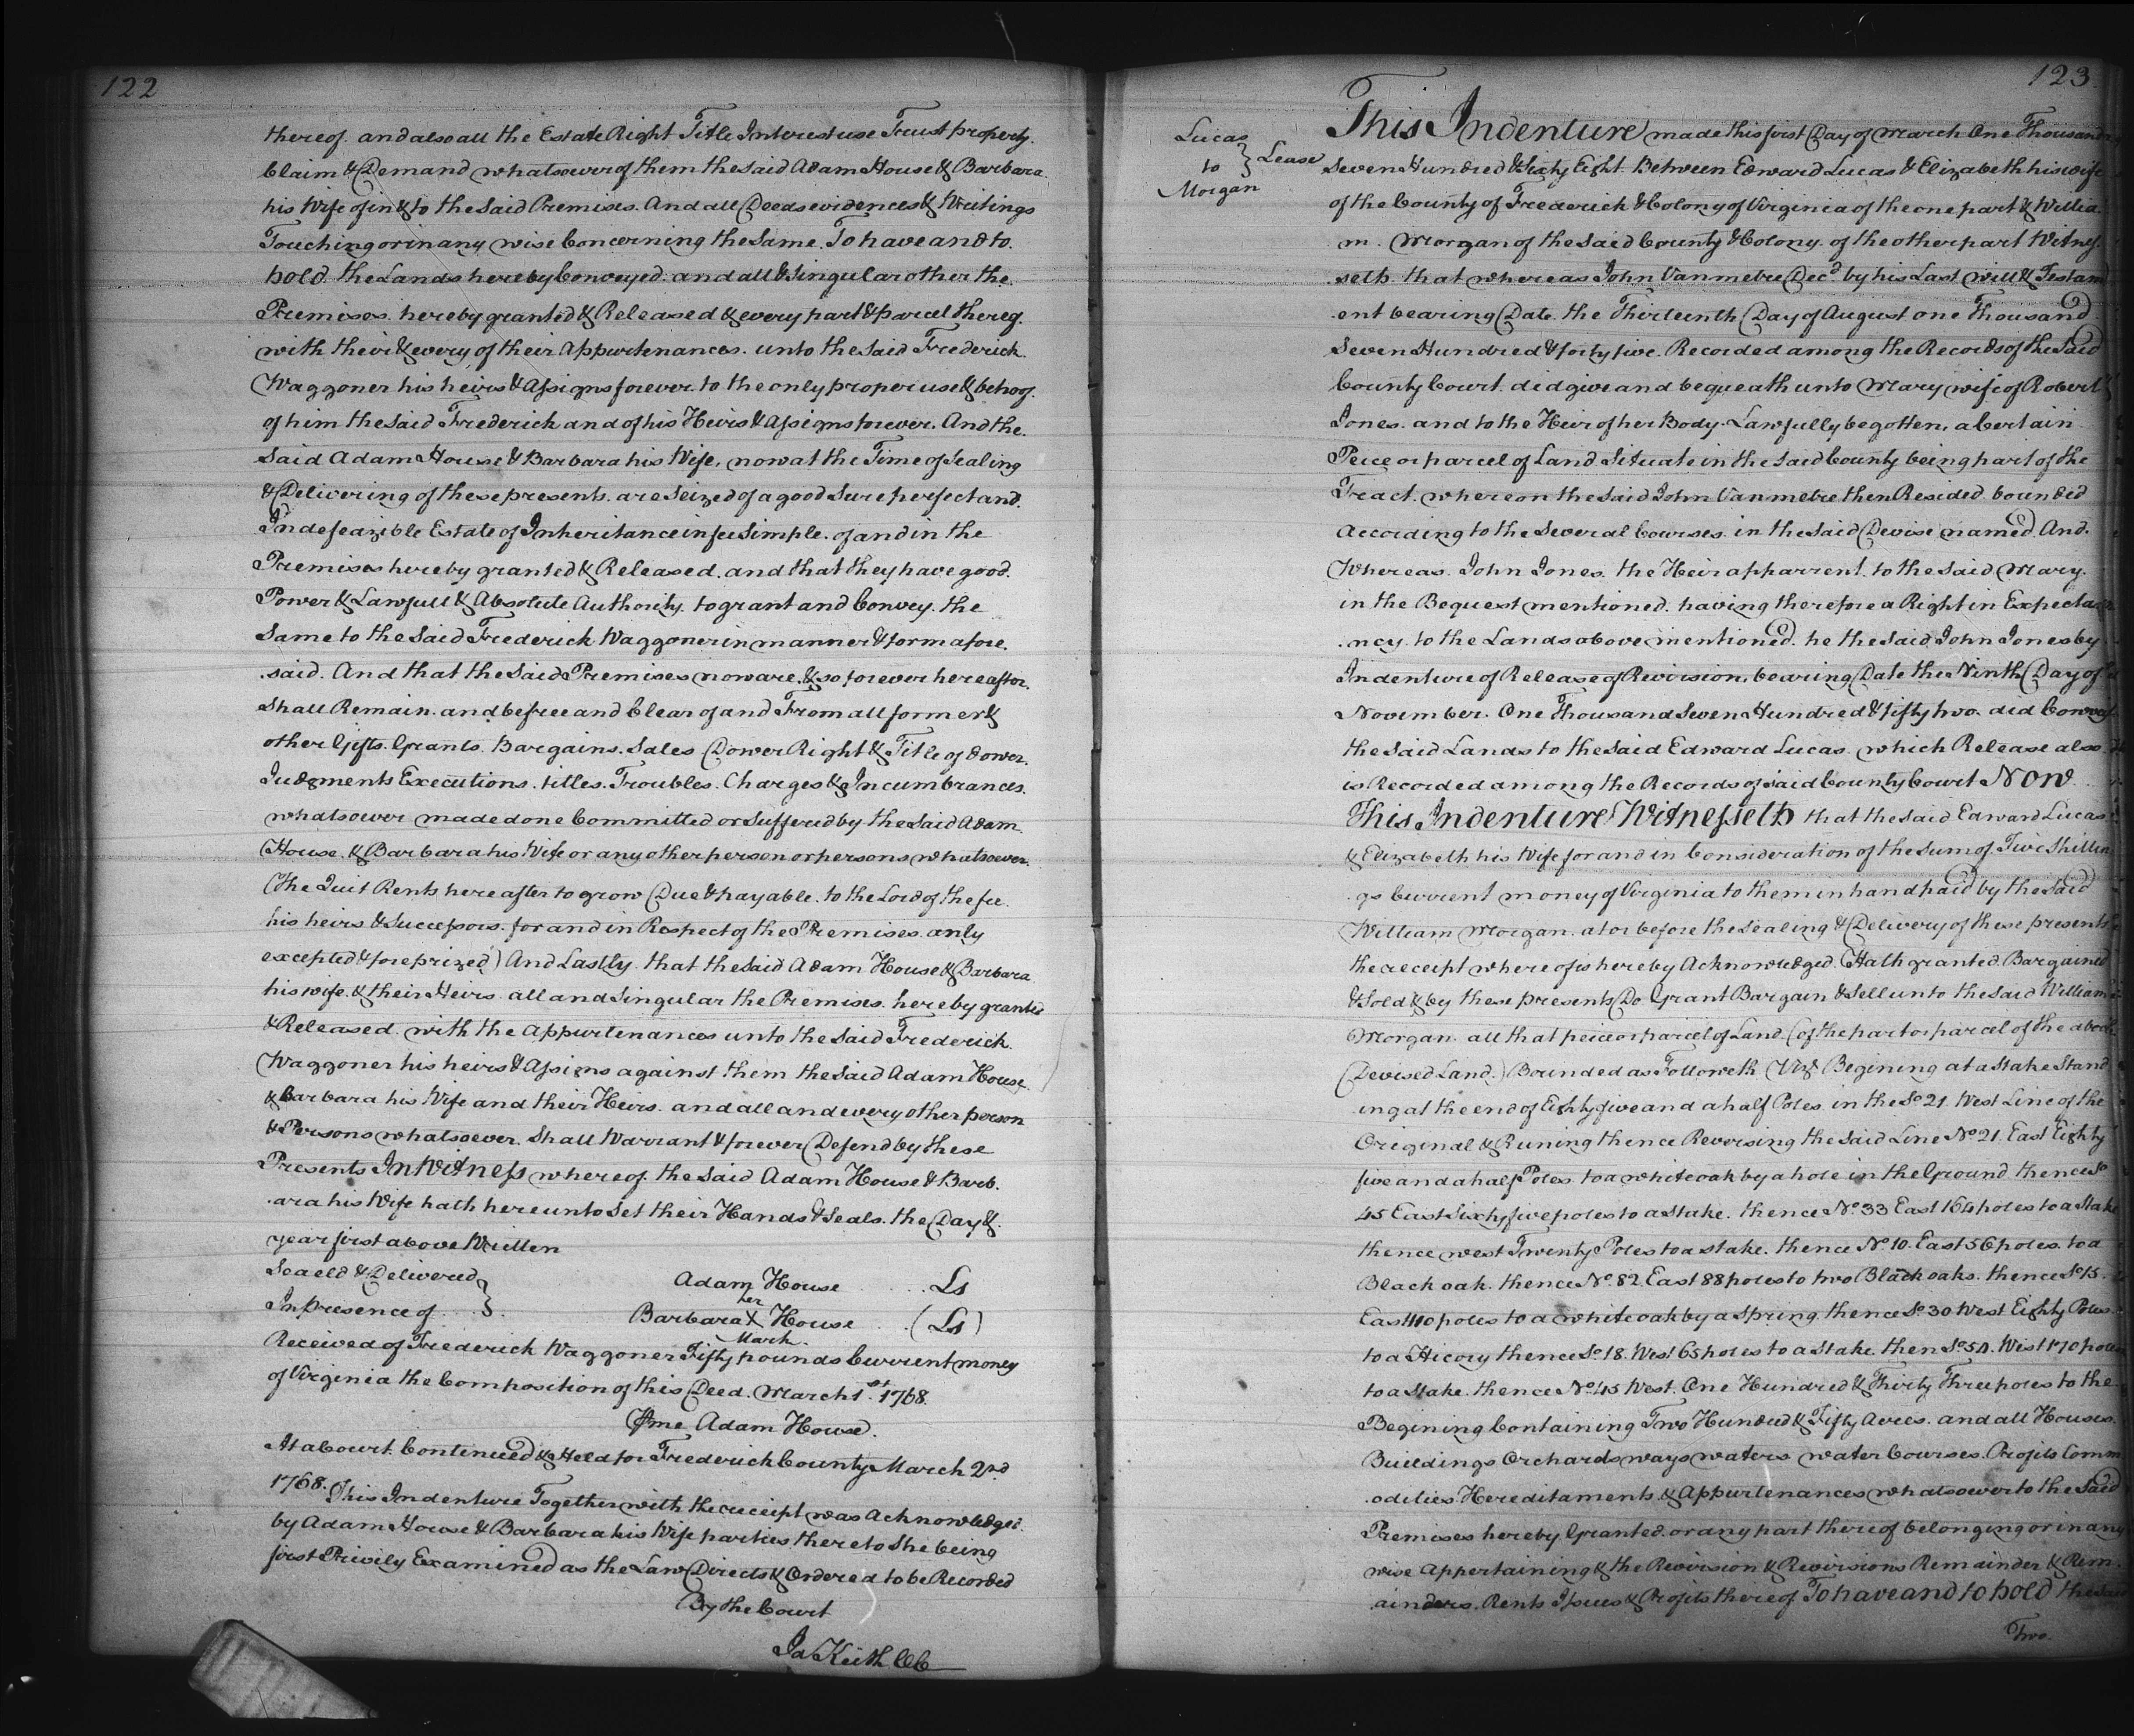 122
thereof. and also all the Estate Right Title Interest use Trust property.
Claim & Demand whatsoever of them the Said Adam House & Barbara.
his Wife of in & to the Said Premises. And all Deeds evidences & Writings
Touching or in any wise Concerning the Same. To have and to.
hold the Lands hereby Conveyed. and all & Singular other the.
Premises. hereby granted & Released & every part & parcel thereof.
with their & every of their Appurtenances. unto the Said Frederick.
Waggoner his heirs & Assigns forever. to the only proper use & behoof.
of him the Said Frederick and of his Heirs & Assigns forever. And the.
Said Adam House & Barbara his Wife, now at the Time of Sealing
& Delivering of these presents. are Seized of a good Sure perfect and.
Indefeazible Estate of Inheritance in fee Simple. of and in the
Premises hereby granted & Released. and that they have good.
Power & Lawfull & Absolute Authority. to grant and Convey. the
Same to the Said Frederick Waggoner in manner & form afore.
.said. And that the Said Premises now are. & so forever hereafter.
Shall Remain. and be free and Clear of and From all former &
other Gifts. Grants. Bargains. Sales Dower Right & Title of dower.
Judgments Executions. titles. Troubles. Charges & Incumbrances.
whatsoever made done Committed or Suffered by the Said Adam.
House. & Barbara his Wife or any other person or persons whatsoever.
(the Quit Rents hereafter to grow Due & payable. to the Lord of the fee.
his heirs & Successors. for and in Respect of the Premises. only
excepted & foreprized) And Lastly. that the Said Adam House & Barbara
his wife. & their Heirs. all and Singular the Premises. hereby granted
& Released. with the Appurtenances unto the Said Frederick.
Waggoner his heirs & Assigns against them the Said Adam House.
& Barbara his Wife and their Heirs. and all and every other person
& Persons whatsoever. Shall Warrant & forever Defend by these
Presents In Witness whereof. the Said Adam House & Barb.
.ara his Wife hath hereunto Set their Hands & Seals. the Day &.
year first above Written
Seaeld & Delivered } Adam House Ls
In presence of Barbara her X Mark House (Ls)
Received of Frederick Waggoner Fifty pounds Current money
of Virginia the Composition of this Deed. March 1st. 1768.
⅌ me Adam House.
At a Court. Continued & Held for Frederick County March 2nd
1768. This Indenture Together with the receipt was Acknowledged.
by Adam House & Barbara his Wife parties thereto She being
first Privily Examined as the Law Directs & Ordered to be Recorded
By the Court
Ja Keith CC
123
Lucas
to } Lease
Morgan
This Indenture made this first Day of March One Thousand
Seven Hundred & Sixty Eight. Between Edward Lucas & Elizabeth his wife
of the County of Frederick & Colony of Virginia of the one part & Willia.
m. Morgan of the Said County & Colony. of the other part Witnes.
seth. that whereas John Vanmetre Decd. by his Last Will & Testam
.ent bearing Date. the Thirteenth Day of August one Thousand
Seven Hundred & forty five. Recorded among the Records of the Said
County Court. did give and bequeath unto Mary wife of Robert
Jones. and to the Heir of her Body. Lawfully begotten, a Certain
Peice or parcel of Land Situate in the Said County being part of the
Tract. whereon the Said John Vanmetre then Resided. bounded
According to the Several Courses. in the Said Devise named. And.
Whereas. John Jones. the Heir apparrent. to the Said Mary.
in the Bequest mentioned. having therefore a Right in Expecta
.ncy. to the Lands above mentioned. he the Said John Jones by.
Indenture of Release of Revirsion, bearing Date the Ninth Day of
November. One Thousand Seven Hundred & fifty two. did Convey
the Said Lands to the Said Edward Lucas. which Release also.
is Recorded among the Records of said County Court Now
This Indenture Witnesseth that the said Edward Lucas
& Elizabeth his Wife for and in Consideration of the Sum of. Five Shillin
.gs Current money of Virginia to them in hand paid by the Said
William Morgan. at or before the Sealing & Delivery of these presents
the receipt whereof is hereby Acknowledged. Hath granted. Bargained
& Sold & by these presents Do Grant Bargain & Sell unto the Said William
Morgan. all that peice or parcel of Land. (of the part or parcel of the above
Devised Land.) Bounded as Followeth Vizt. Begining at a Stake Stand
.ing at the end of Eighty five and a half Poles. in the So. 21. West Line of the
Original & Runing thence Reversing the Said Line No. 21. East Eighty
five and a half Poles. to a white oak by a hole in the Ground. thence So
45 East Sixty five poles to a Stake. thence No. 33 East 164 poles to a Stake
thence west Twenty Poles to a stake. thence No. 10. East 56 poles. to a
Black oak. thence No. 82. East 88 poles to two Black oaks. thence So 15.
East 110 poles to a white oak by a Spring. thence So. 30 West Eighty Poles.
to a Hicory thence So. 18. West 65 poles to a Stake. then So 50. West 170 poles
to a Stake. thence No. 45 West. One Hundred & Thirty Three poles to the
Begining Containing Two Hundred & Fifty Acres. and all Houses.
Buildings Orchards ways waters water Courses. Profits Comm
.odities. Hereditaments & Appurtenances whatsoever to the Said
Premises hereby Granted. or any part thereof belonging or in any
wise Appertaining & the Revirsion & Revirsions Remainder & Rem.
.ainders. Rents Issues & Profits thereof To have and to hold the Said
Two